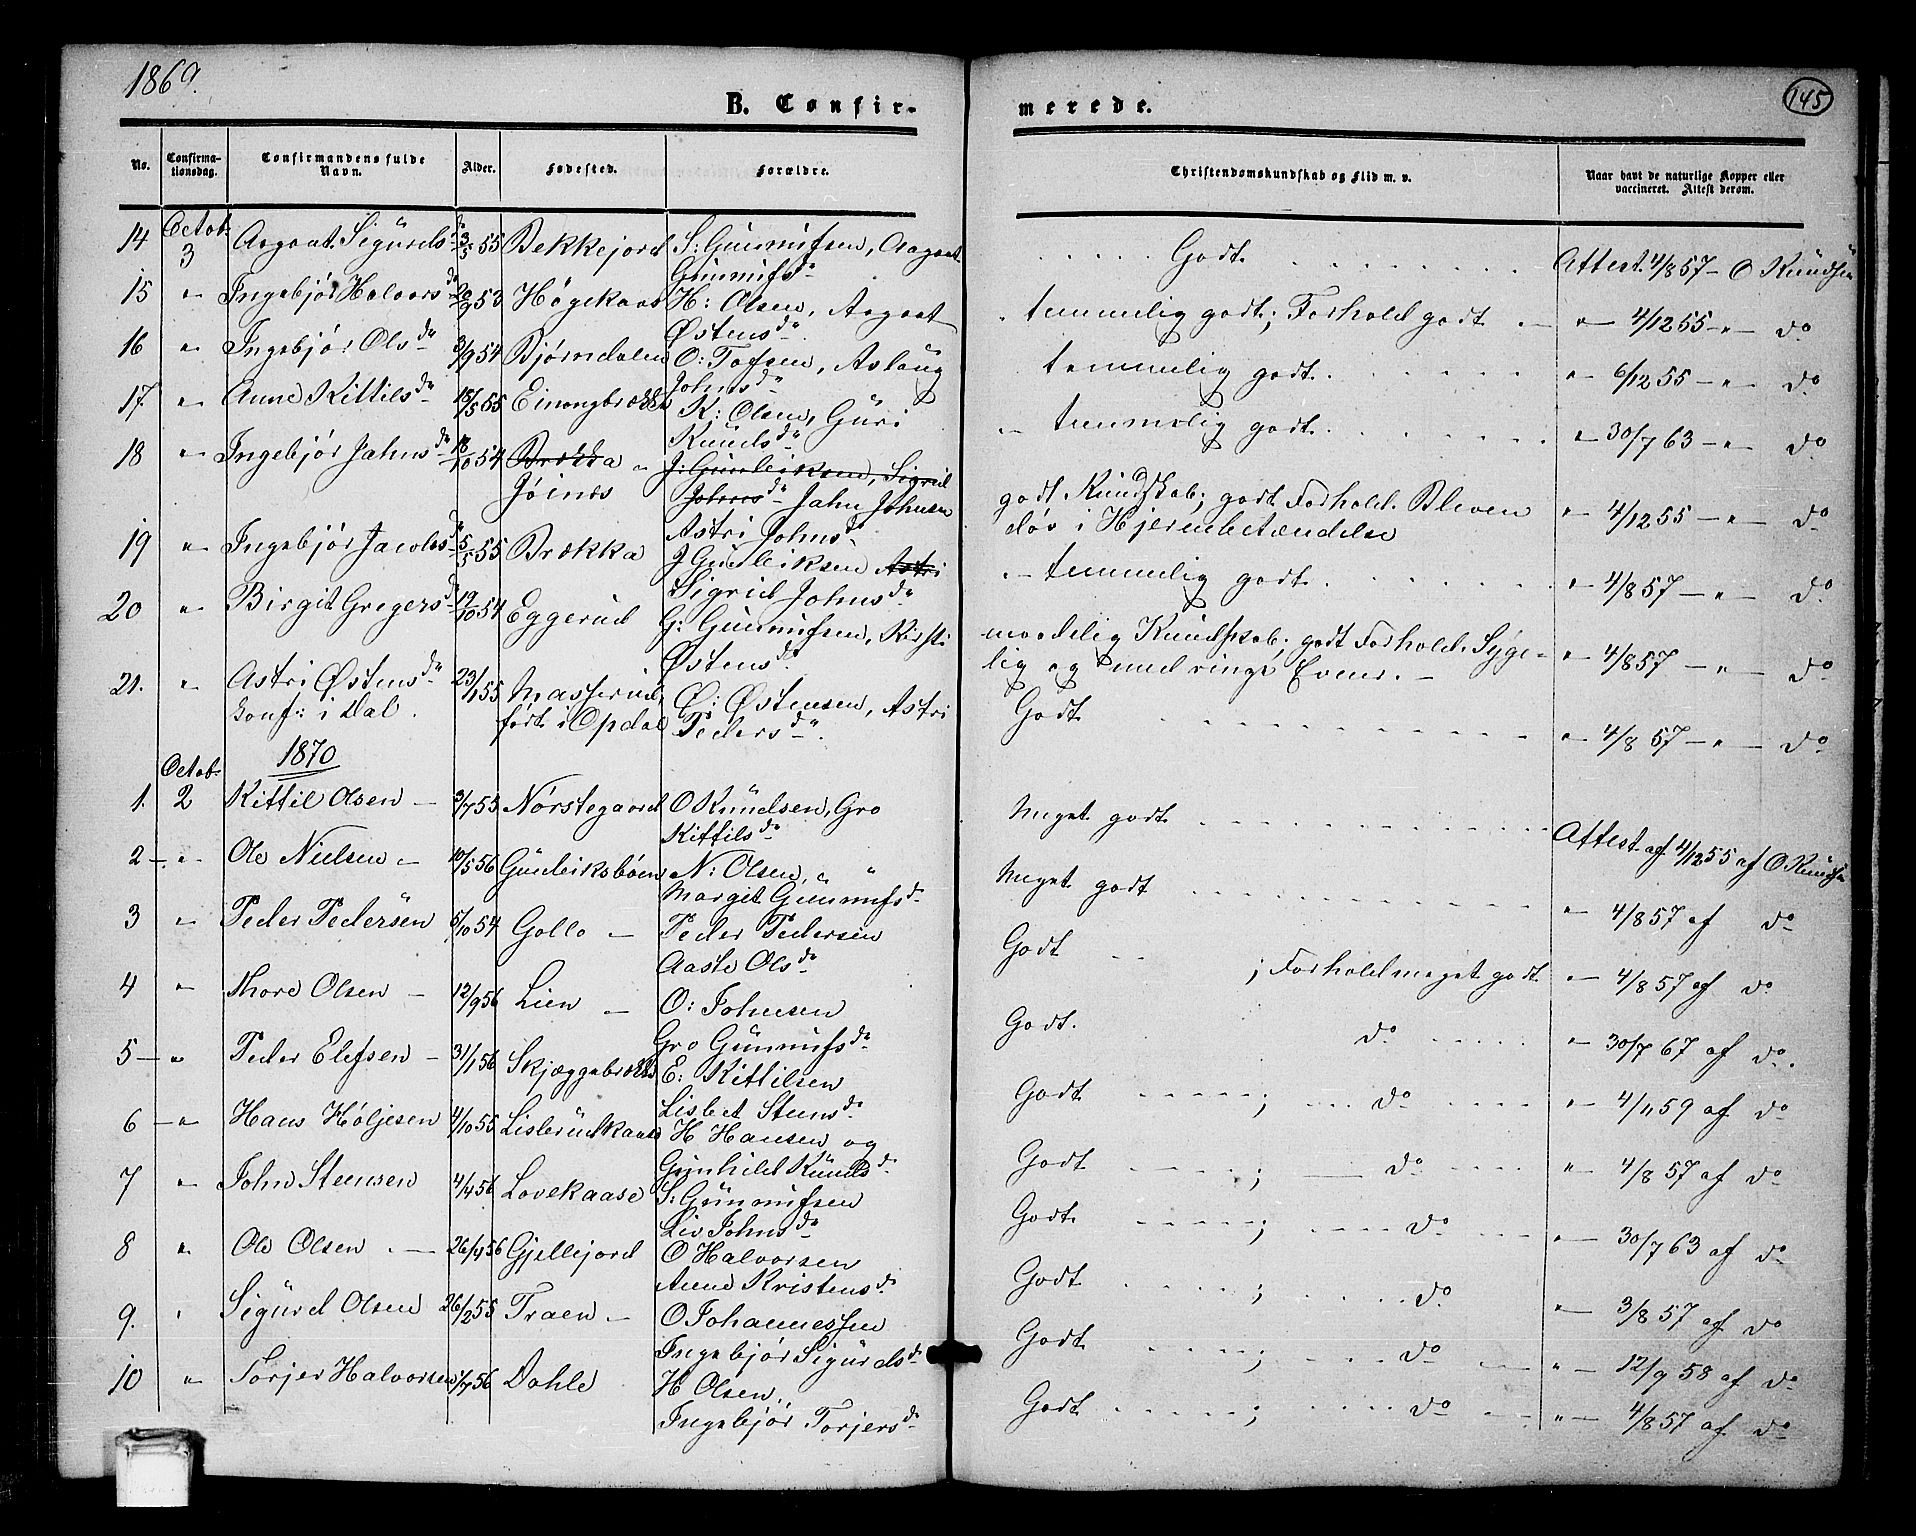 1869.
145
B. Confirmerede.
No. Confirmationsdag. Confirmandens fulde Navn. Alder. Fødested. Forældre. Christendomskundskab og Flid m. v. Naar havt de naturlige Kopper eller vaccineret. Attest derom.
14 Octob: 3 Aagaat Sigurdsdr 3/5 55 Bekkejord S: Gunnufsen, Aagaat Gunnufsdr Godt. Attest. 4/8 57 – O Knudsen
15 " Ingebjør Halvorsdr 20/9 53 Høgekaas H: Olsen, Aagaat Østensdr. temmelig godt; Forhold godt " – 4/12 55 – " – do
16 " Ingebjør Olsdr 3/9 54 Bjørndalen O: Tofsen, Aslaug Johnsdr temmelig godt. " 6/12 55 – " – do
17. " Anne Kittilsdr 18/5 55 Einongbrække K: Olsen, Guri Knudsdr – temmelig godt. " 30/7 63 – " – do
18 " Ingebjør Jahnsdr 18/10 54 Brække – J: Gunleiksen, Sigrid Johnsdr
Jøines Jahn Johnsen Astri Johnsdr godt Kundskab; godt Forhold. Bleven døv i Hjernebetændelse " 4/12 55 – " – do
19 " Ingebjør Jacobsdr 5/5 55 Brækka J Gunleiksen Astri Sigrid Johnsdr – temmelig godt. " 4/8 57 – " – do
20 " Birgit Gregersdr 19/10 54 Eggerud G: Gunnufsen, Kirsti Østensdr. maadelig Kundskab; godt Forhold. Sygelig og med ringe Evner. – " 4/8 57 – " – do
21. " Astri Østensdr 23/1 55 Masserud, Ø: Østensen, Astri Pedersdr. Godt " – 4/8 57 – " – do
konf: i Dal. født i Opdal
1870
1. Octob: 2 Kittil Olsen – 3/7 55 Nørstegaard O Knudsen, Gro Kittilsdr Meget godt Attest af 4/12 55 af O Knudsen
2 – " Ole Nielsen – 10/5 56 Gunleiksbøen N: Olsen, Margit Gunnufsdr Meget godt " – 4/8 57 af do
3 " Peder Pedersen 5/10 54 Gollo – Peder Pedersen Aaste Olsdr Godt ; Forhold meget godt " – 4/8 57 af do
4 " Thore Olsen – 12/9 56 Lien – O: Johnsen Gro Gunnufsdr Godt. do " – 30/7 67 af do.
5 – " Peder Elefsen – 31/1 56 Skjæggebrække E: Kittilsen Lisbet Stensdr Godt ; do " – 4/11 59 af do
6 – " Hans Høljesen 4/10 55 Lislerudkaasa H Hansen og Gunhild Knudsdr Godt ; do " – 4/8 57 af do
7 " John Steensen 4/4 56 Lovekaase S: Gunnufsen Liv Johnsdr Godt. ; do " – 30/7 63 af do
8 " Ole Olsen – 26/4 56 Gjellejord O Halvorsen Anne Kristensdr Godt ; do " – 3/8 57 af do
9. " Sigurd Olsen 26/2 55 Traen – O Johannessen Ingebjør Sigurdsdr Godt ; do " – 12/9 58 af do
10 " Torjer Halvorsen 1/7 56 Dahle H Olsen, Ingebjør Torjersdr Godt ; do " – 4/8 57 af do